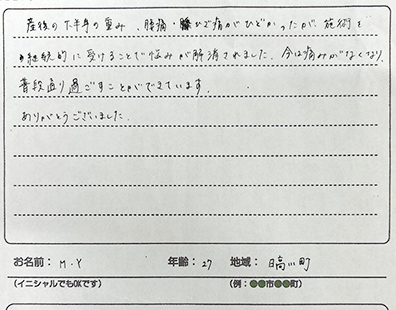 産後の下半身の重み、腰痛・ひざ痛がひどかったが、施術を
継続的に受けることで悩みが解消されました。今は痛みがなくなり、
普段通り過ごすことができています。
ありがとうございました。
お名前： M.Y 年齢： 27 地域： 日高川町
(イニシャルでもOKです) (例：●●市●●町)